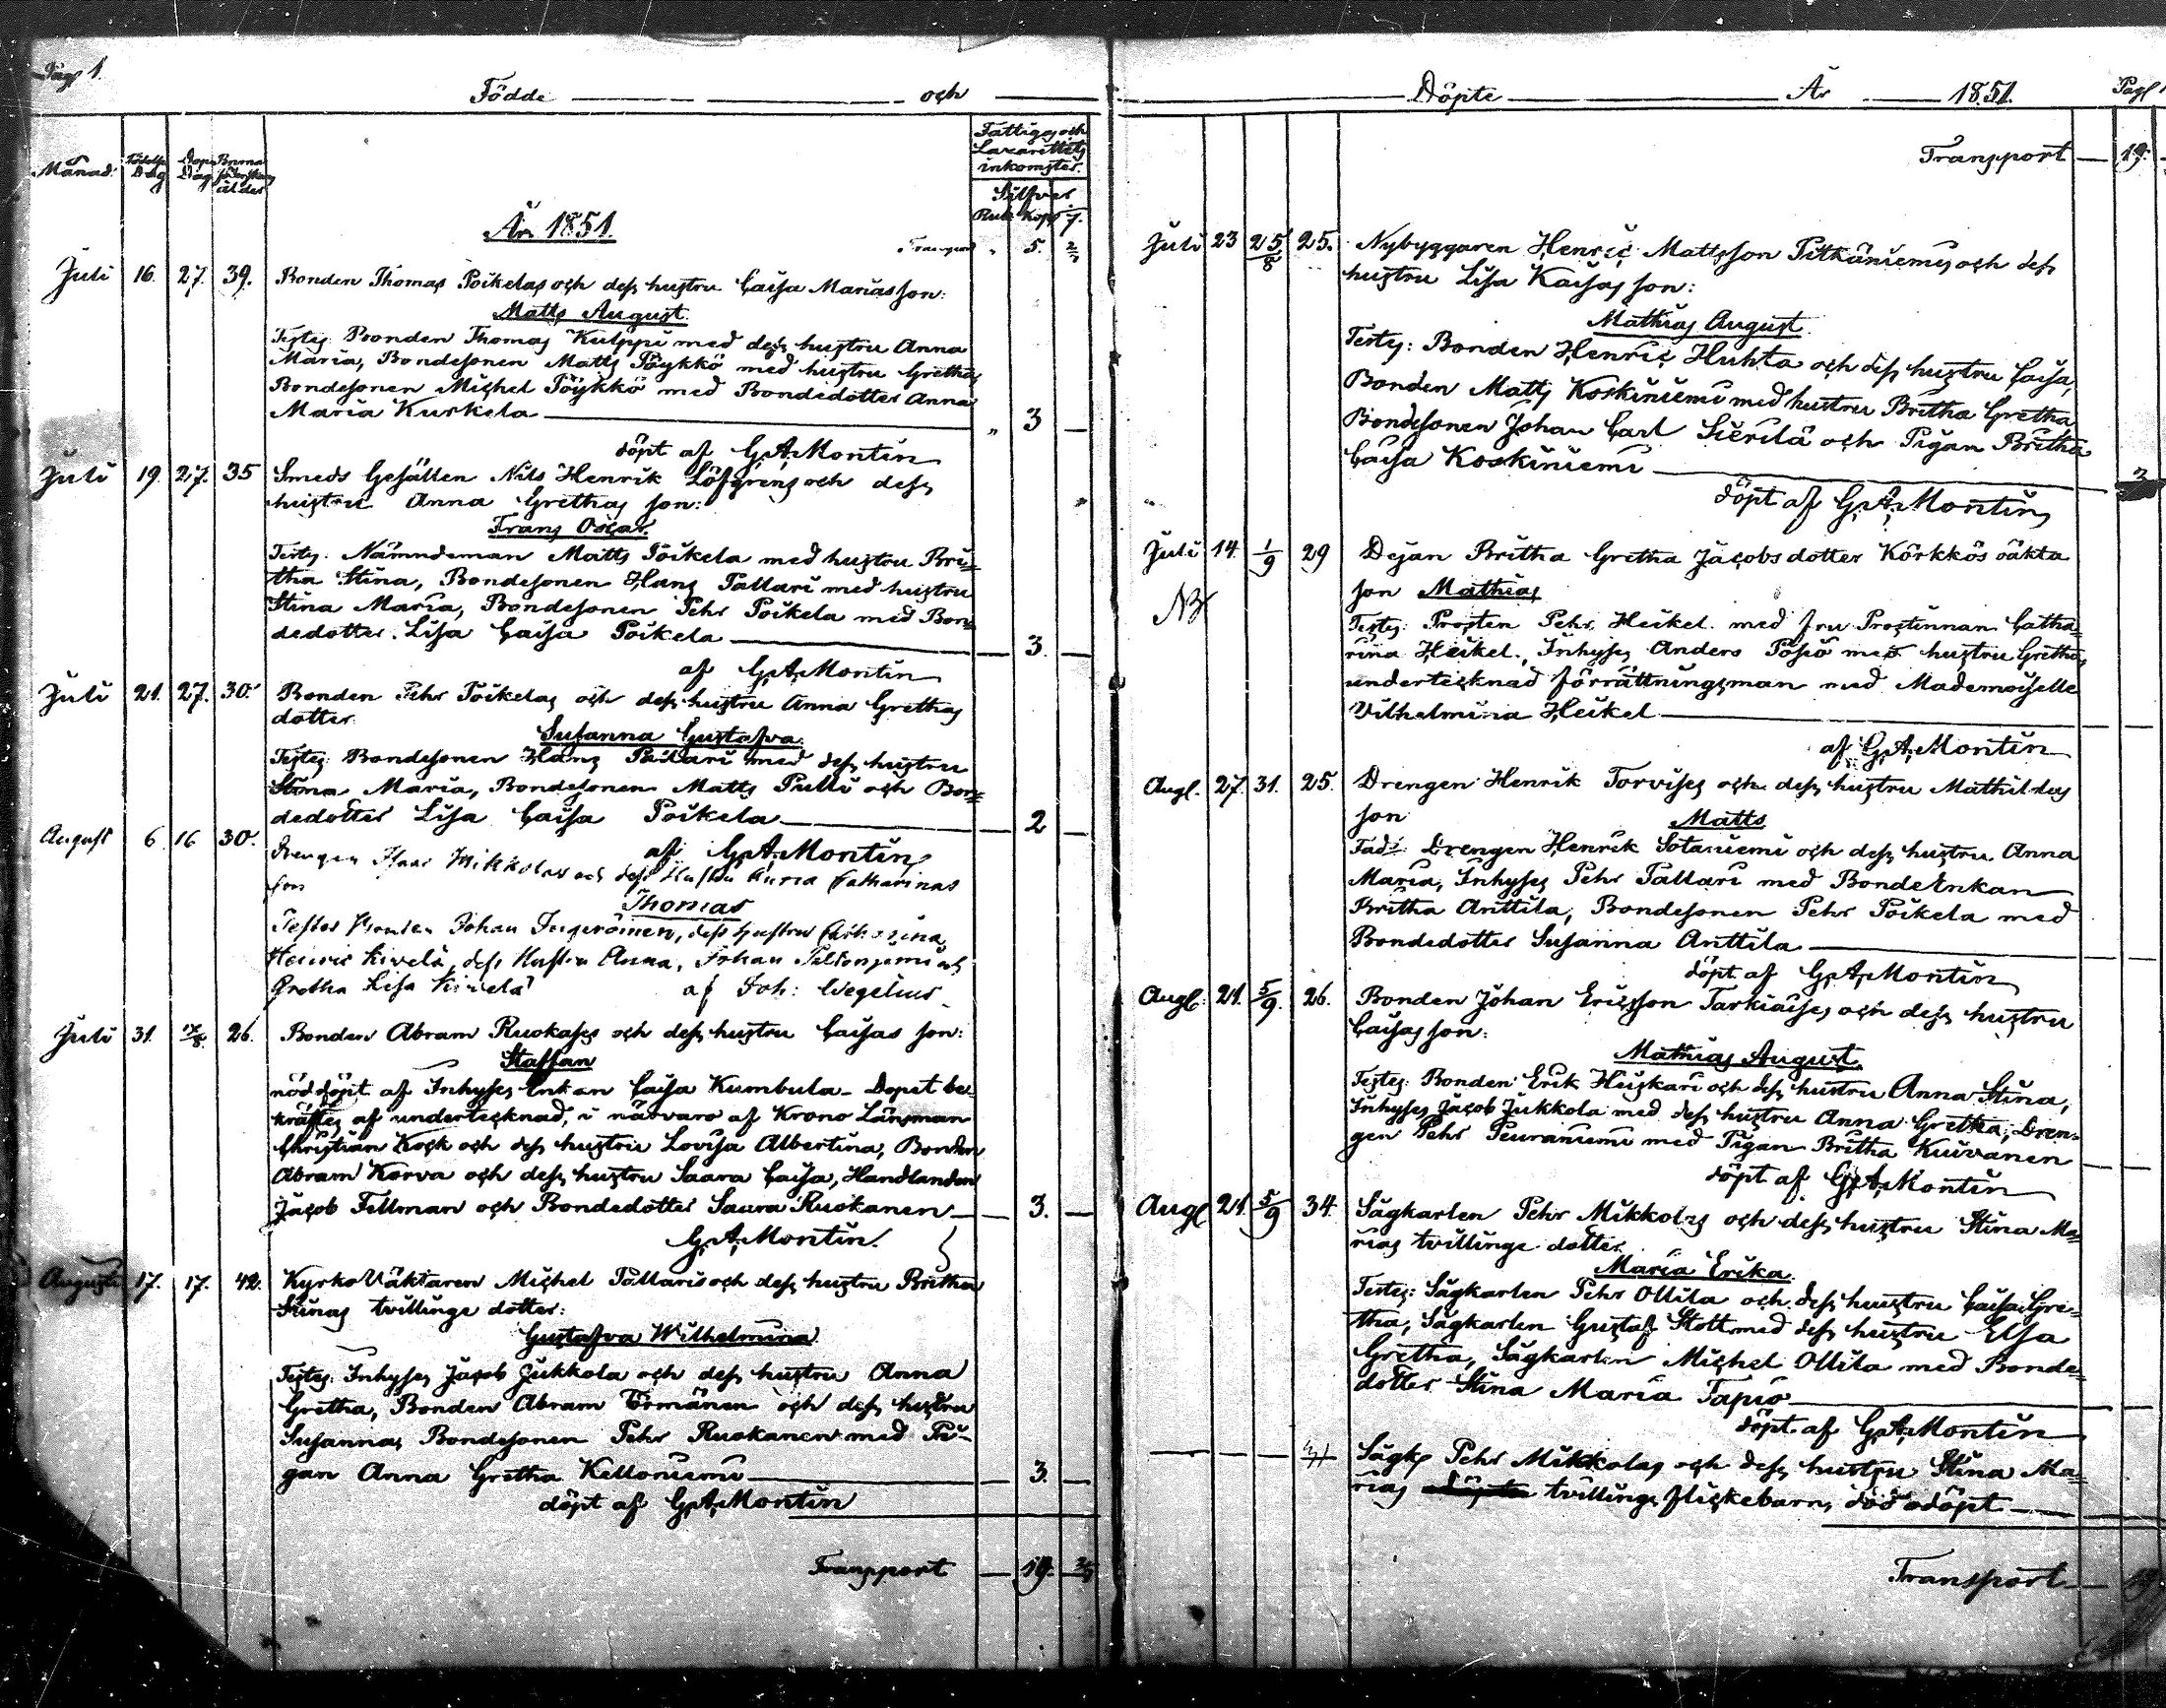 Pag 1.
Födde och
Månad. Födelse Dag Dop Dag Barna föderskans ålder
Fattigs och Lazarettets inkomster.
Silfver
Rub. Kop.
År 1851.
Transport " 5. 2/7
Juli 16. 27. 39. Bonden Thomas Poikelas och dess hustru Caisa Marias son:
Matts August.
Testes: Bonden Thomas Kulppi med dess hustru Anna
Maria, Bondesonen Matts Pöykkö med hustru Gretha,
Bondesonen Michel Pöykkö med Bondedotter Anna
Maria Kurkela " 3 —
döpt af G.A. Montin
Juli 19. 27. 35 Smeds Gesällen Nils Henrik Löfgrens och dess
hustru Anna Grethas son:
Frans Oscar.
Testes: Nämndeman Matts Poikela med hustru Bri=
tha Stina, Bondesonen Hans Pallari med hustru
Stina Maria, Bondesonen Pehr Poikela med Bon=
dedotter Lisa Caisa Poikela — 3. —
af G.A. Montin
Juli 21. 27. 30. Bonden Pehr Poikelas och dess hustru Anna Grethas
dotter
Susanna Gustafva.
Testes: Bondesonen Hans Pallari med dess hustru
Stina Maria, Bondesonen Matts Pulli och Bon=
dedotter Lisa Caisa Poikela — 2 —
af G.A. Montin
August 6. 16 30. Drengen Isaac Mikkolas och dess Hustru Anna Catharinas
son
Thomas
Testes Bonden Johan Ingeröinen, dess hustru Catharina,
Henric Kivelä, dess Hustru Anna, Johan Peltoniemi och
Gretha Lisa Kivelä af Joh: Wegelius
Juli 31. 17/8. 26. Bonden Abram Ruokases och dess hustru Caisas son:
Staffan
nöddöpt af Inhyses Enkan Caisa Kumbula. Dopet be=
kräftes af undertecknad, i närvaro af Krono Länsman
Christian Kock och dess hustru Lovisa Albertina, Bonden
Abram Korva och dess hustru Saara Caisa, Handlanden
Jacob Fellman och Bondedotter Saura Ruokanen — 3. —
G.A. Montin.
Augusti 17. 17. 42. KyrkoVäktaren Michel Pallaris och dess hustru Britha
Stinas tvillinge dotter:
Gustafva Wilhelmina
Testes: Inhyses Jacob Jukkola och dess hustru Anna
Gretha, Bonden Abram Törmänen och dess hustru
Susanna, Bondesonen Pehr Ruokanen med Pi=
gan Anna Gretha Kelloniemi — 3. —
döpt af G.A. Montin
Transport — 19. 2/7
Döpte År 1851. Pag 1
Transport — 19.
Juli 23 25/8 25. Nybyggaren Henric Mattsson Pitkäniemis och dess
hustru Lisa Kaisas son:
Mathias August.
Testes: Bonden Henric Huhta och dess hustru Caisa,
Bonden Matts Koskiniemi med hustru Britha Gretha,
Bondesonen Johan Carl Sierilä och Pigan Britha
Caisa Koskiniemi 3
döpt af G.A. Montin
Juli 14. 1/9 29 Dejan Britha Gretha Jacobsdotter Körkkös oäkta
NB son Mathias
Testes: Prosten Pehr Heikel med fru Prostinnan Catha=
rina Heikel, Inhyses Anders Posio med hustru Gretha,
undertecknad förrättningsman med Mademoiselle
Vilhelmina Heikel
af G.A. Montin
Aug. 27. 31. 25. Drengen Henrik Torvises och dess hustru Mathildas
son Matts
Fad: Drengen Henrik Sotaniemi och dess hustru Anna
Maria, Inhyses Pehr Pallari med BondeEnkan
Britha Anttila, Bondesonen Pehr Poikela med
Bondedotter Susanna Anttila
döpt af G.A. Montin
Aug. 21. 5/9. 26. Bonden Johan Ericsson Tarkiaises och dess hustru
Caisas son:
Mathias August.
Testes: Bonden Erik Heiskari och dess hustru Anna Stina,
Inhyses Jacob Jukkola med dess hustru Anna Gretha, Dren=
gen Pehr Peuraniemi med Pigan Britha Kuivanen
döpt af G.A. Montin
Aug 21. 5/9 34. Sågkarlen Pehr Mikkolas och dess hustru Stina Ma=
rias tvillinge dotter
Maria Erika.
Testes: Sågkarlen Pehr Ollila och dess hustru Caisa Gre=
tha, Sågkarlen Gustaf Stolt med dess hustru Elsa
Gretha, Sågkarlen Michel Ollila med Bonde=
dotter Stina Maria Tapio
döpt af G.A. Montin
— — — Sågk. Pehr Mikkolas och dess hustru Stina Ma=
rias tvillinge flickebarn, död odöpt
Transport — 19